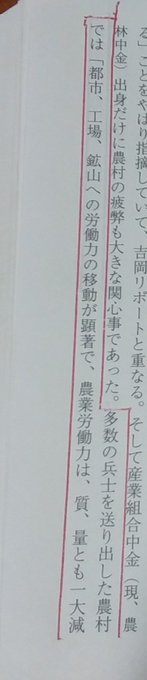 る」ことをやはり指摘していて、吉岡リポートと重なる。そして産業組合中金（現、農
林中金）出身だけに農村の疲弊も大きな関心事であった。多数の兵士を送り出した農村
では「都市、工場、鉱山への労働力の移動が顕著で、農業労働力は、質、量とも一大減